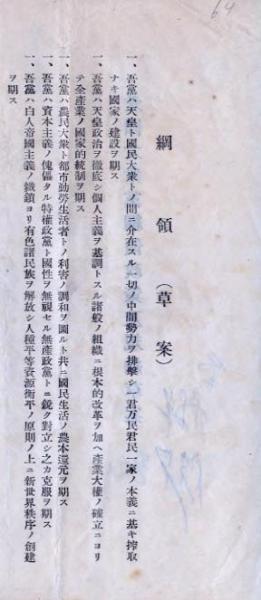 64
綱領（草案）
一、吾黨ハ天皇ト國民大衆トノ間ニ介在スル一切ノ中間勢力ヲ排擊シ一君万民君民一家ノ本義ニ基キ搾取
ナキ國家ノ建設ヲ期ス
一、吾黨ハ天皇政治ヲ徹底シ個人主義ヲ基調トスル諸般ノ組織ニ根本的改革ヲ加ヘ產業大權ノ確立ニヨリ
テ全產業ノ國家的統制ヲ期ス
一、吾黨ハ農民大衆ト都市勤勞生活者トノ利害ノ調和ヲ圖ルト共ニ國民生活ノ農本還元ヲ期ス
一、吾黨ハ資本主義ノ傀儡タル特權政黨ト國性ヲ無視セル無產政黨トニ銳ク對立シ之カ克服ヲ期ス
一、吾黨ハ白人帝國主義ノ鐵鎖ヨリ有色諸民族ヲ解放シ人種平等資源衡平ノ原則ノ上ニ新世界秩序ノ創建
ヲ期ス